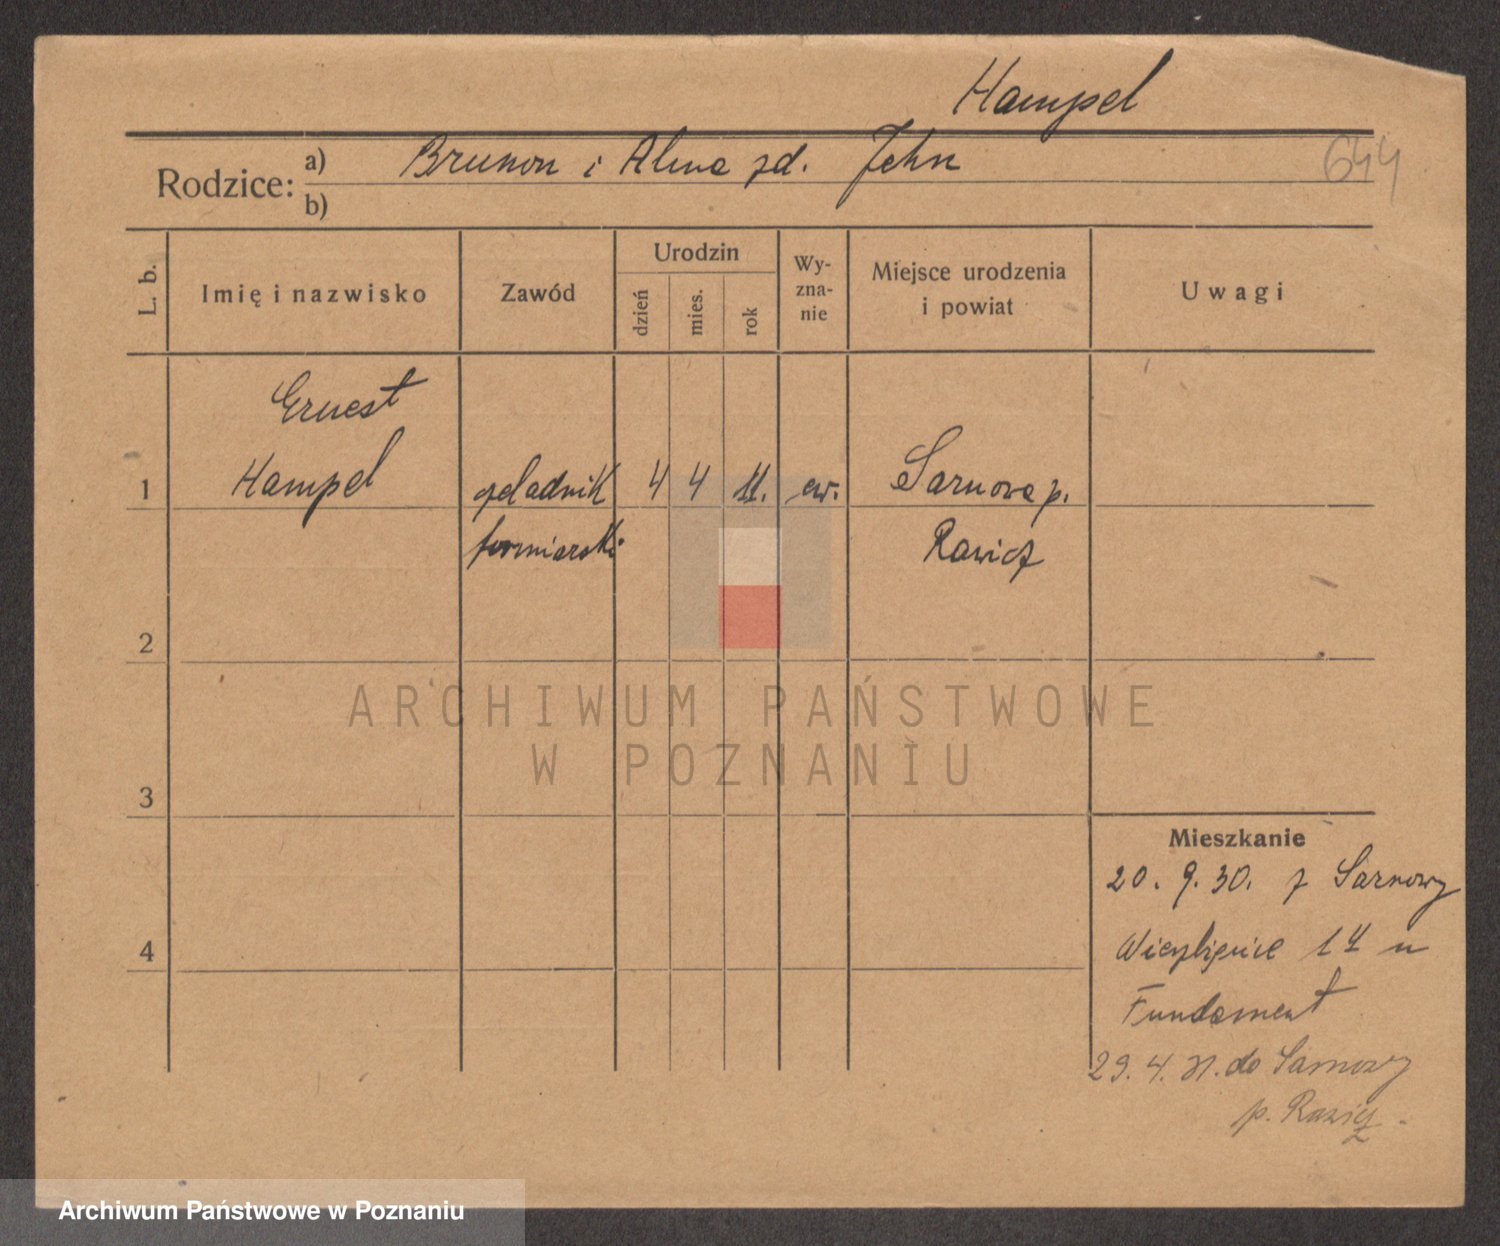 Hampel
644
Rodzice: a) Brunon i Alma zd. Jehn
b)
L. b. Imię i nazwisko Zawód Urodzin dzień mies. rok Wyznanie Miejsce urodzenia i powiat Uwagi
Ernest
1 Hampel czeladnik 4 4 11. ew. Sarnowa p.
formierski Rawicz
2
3
4
Mieszkanie
20. 9. 30. z Sarnowy
14 u
Fundament
29. 4. 31. do Sarnowy
p. Rawicz
ARCHIWUM PAŃSTWOWE
W POZNANIU
Archiwum Państwowe w Poznaniu